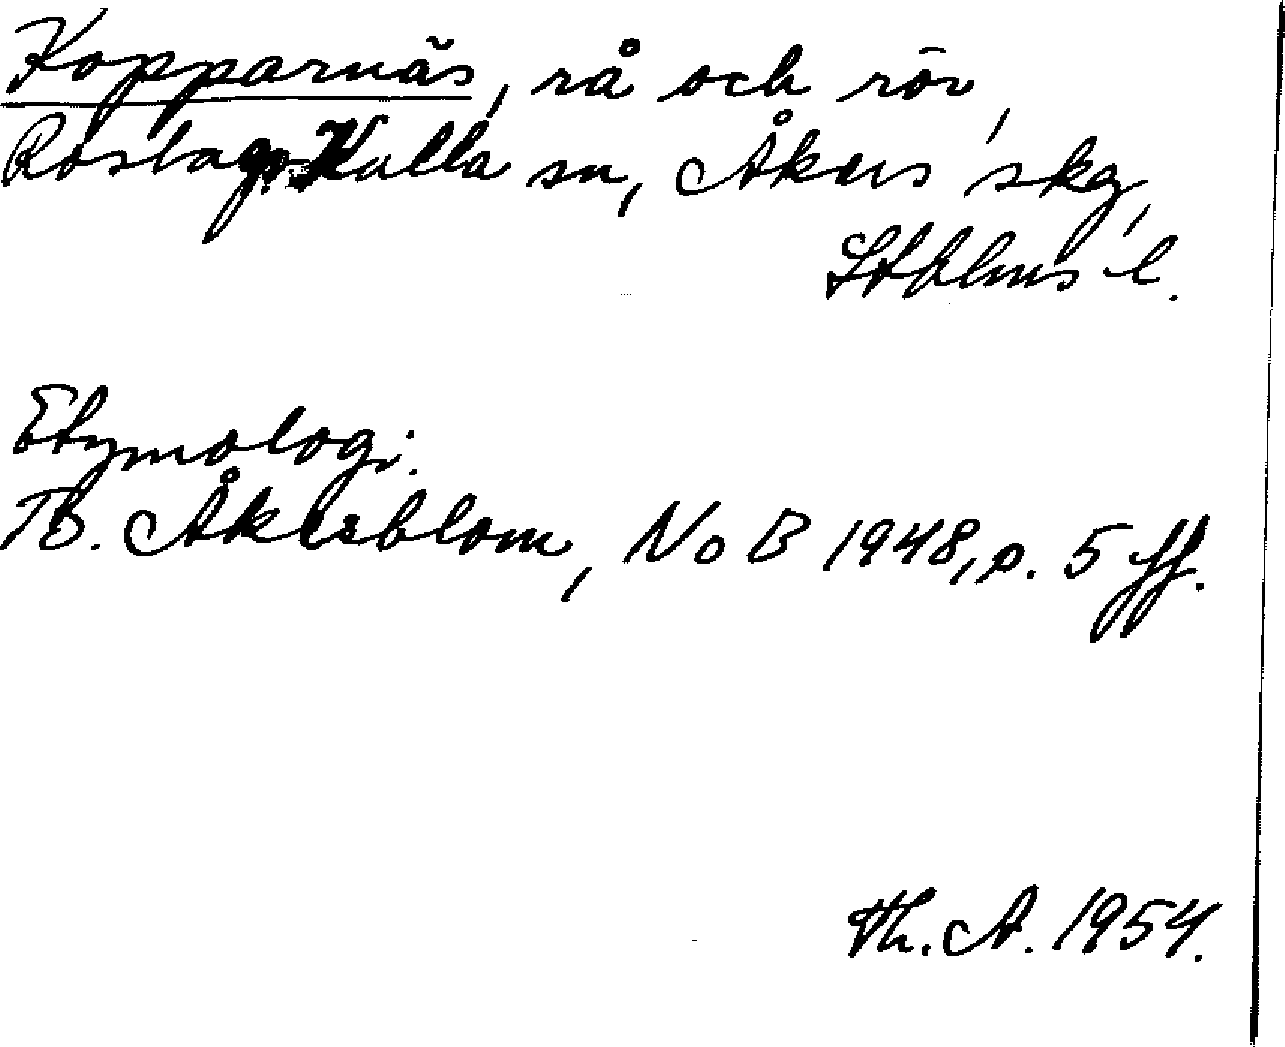 Kopparnäs, rå och rör,
Roslags-Kulla sn, Åkers skg,
Sthlms l.
Etymologi.
B. Åkerblom, NoB 1948, s. 5 ff.
Th. A. 1954.